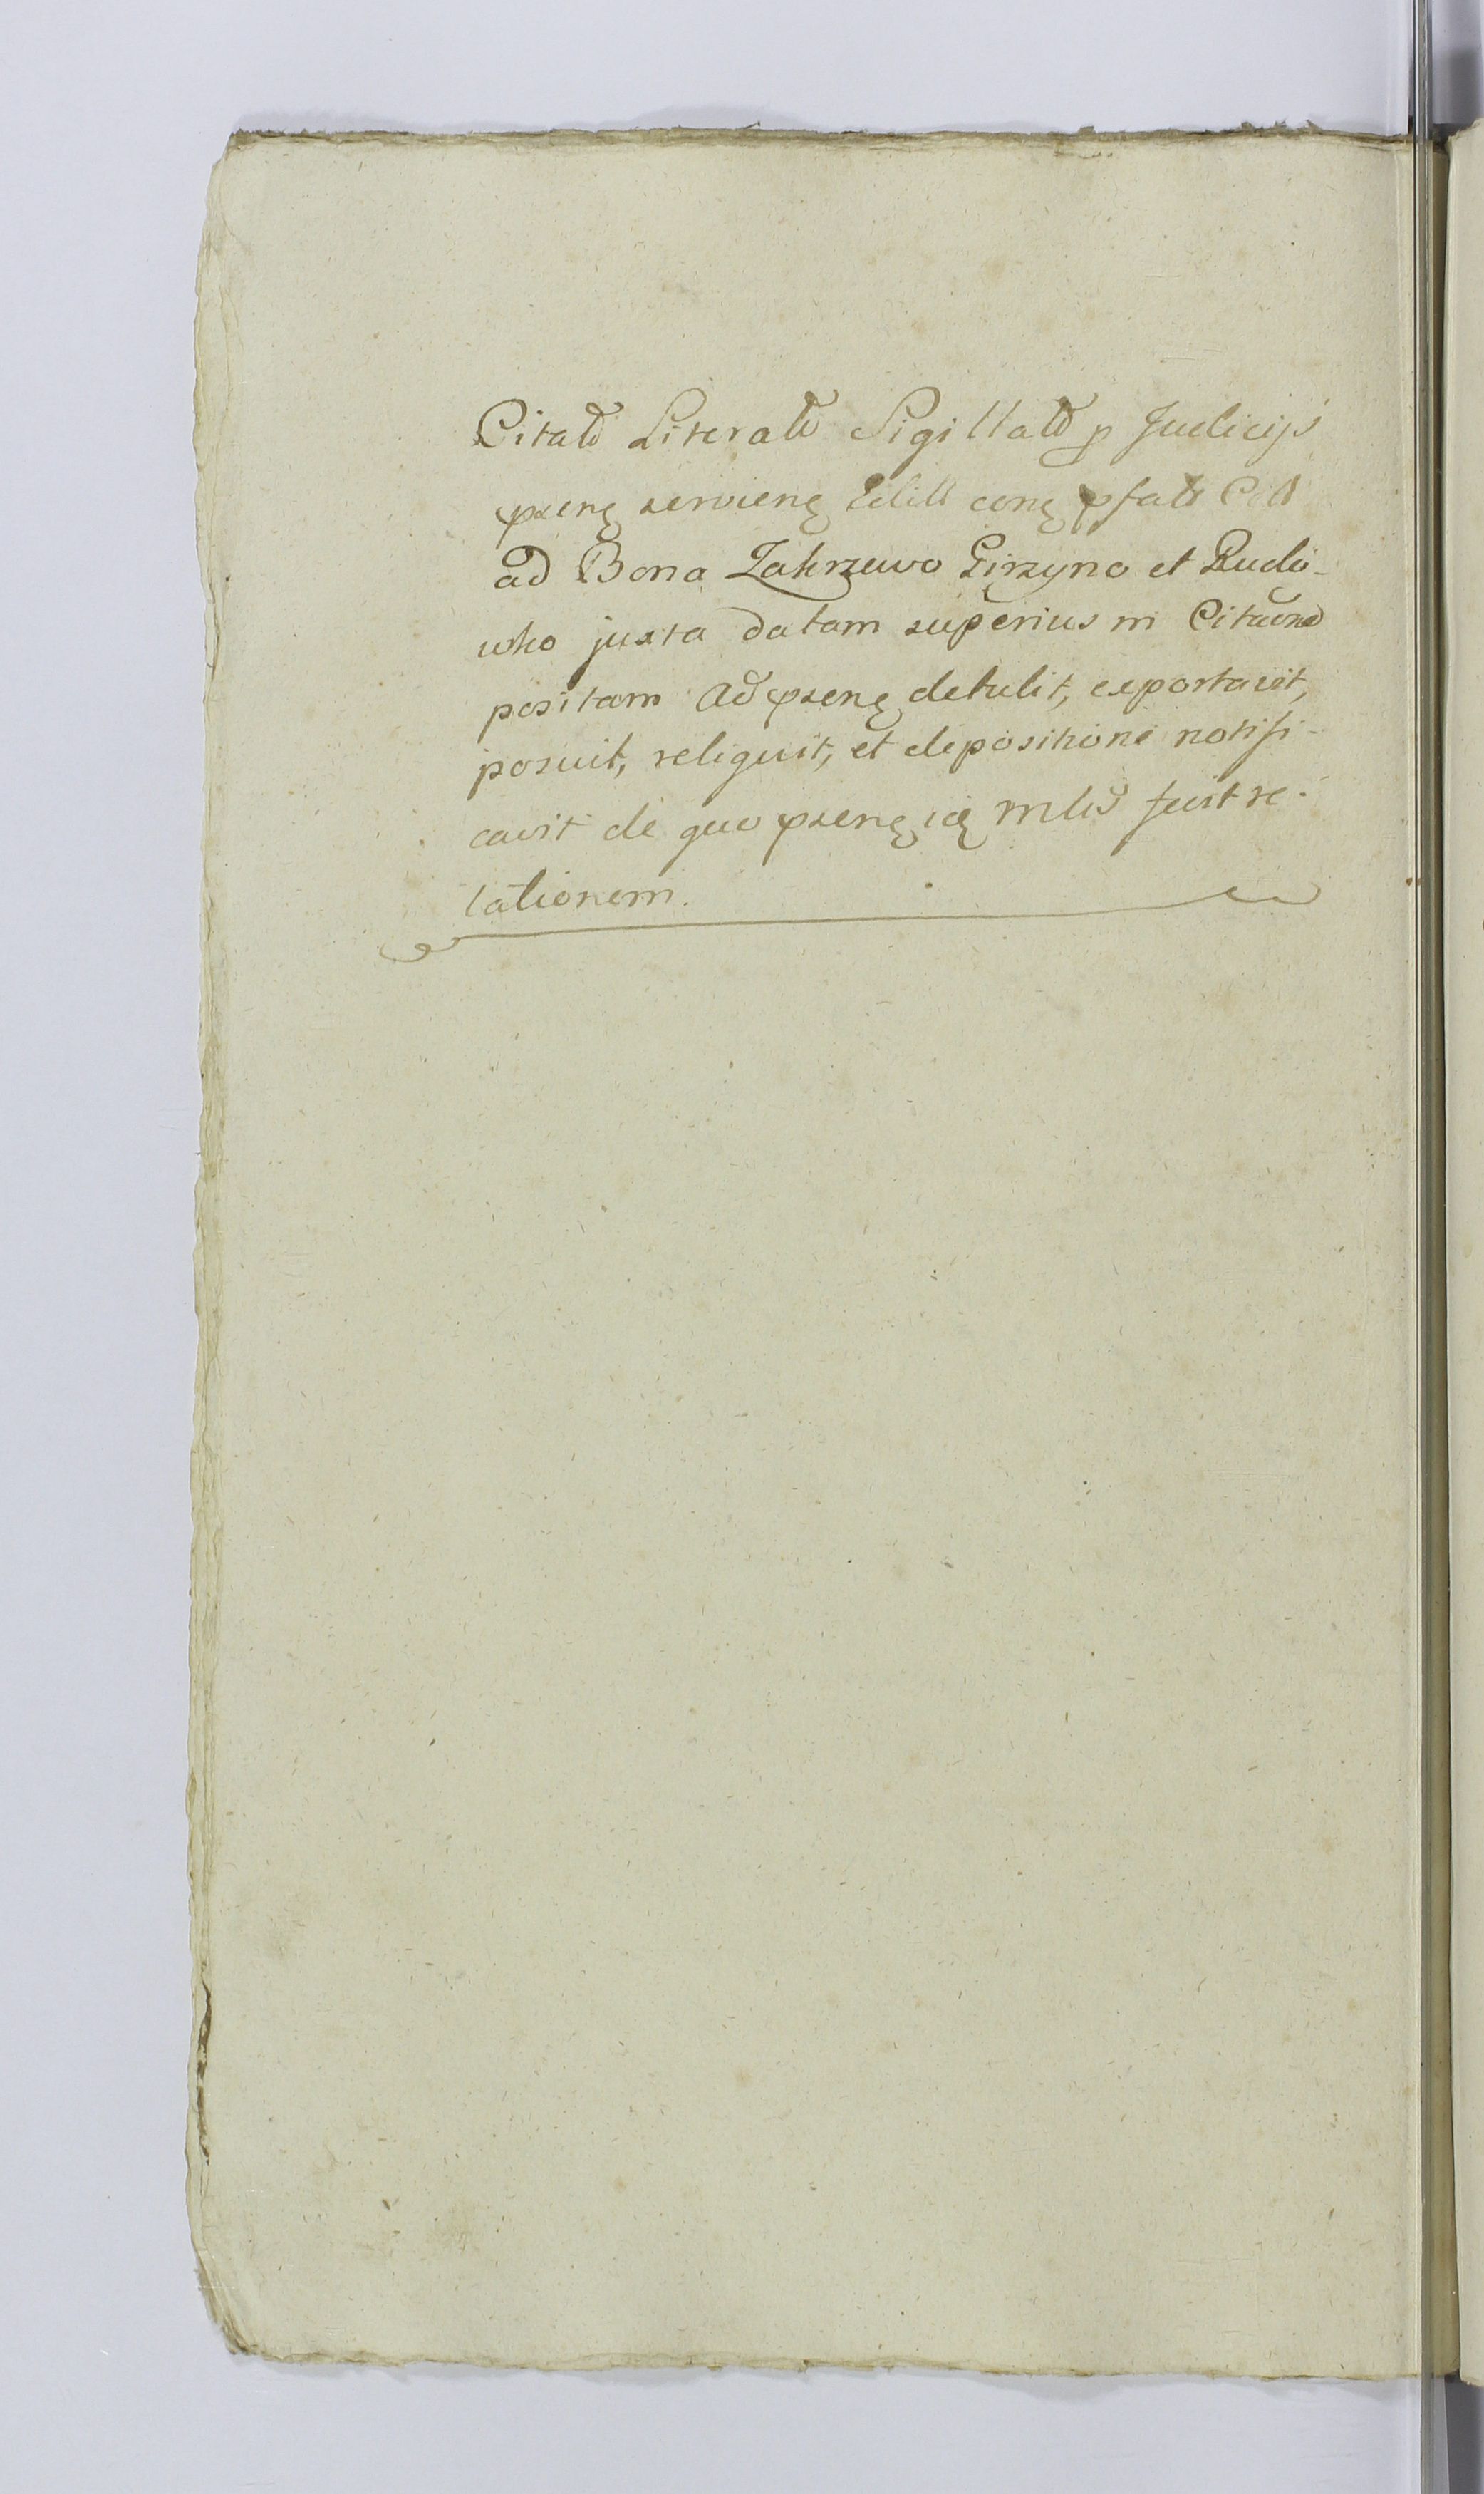 Citatô Literatô Sigillatô p Judicijs
pseng servieng Edill cong pfatô Citt
ad Bona Zakrzewo Girzyno et Rudo-
wko juxta datam superius in Citaõne
positam ad pseng detulit, exportavit,
posuit, reliquit, et depositione notifi-
cavit de quo pseng icg mlis fecit re-
lationem.